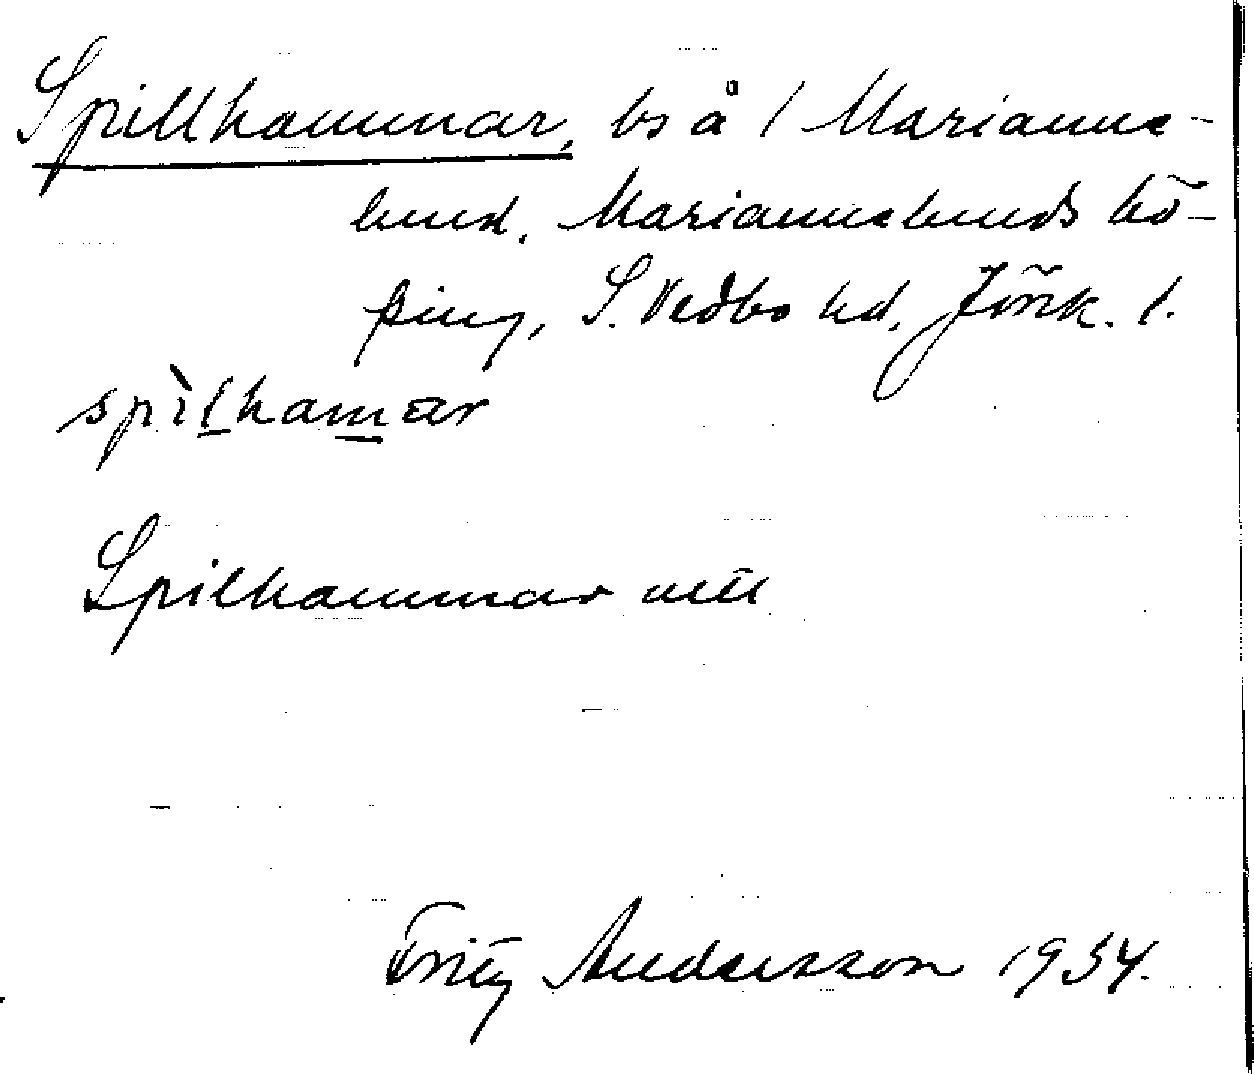 Spillhammar, bs å / Marianne-
lund, Mariannelunds kö-
ping, S. Vedbo hd, Jönk. l.
spìlhamar
Spilhammar mtl
Fritz Andersson 1934.